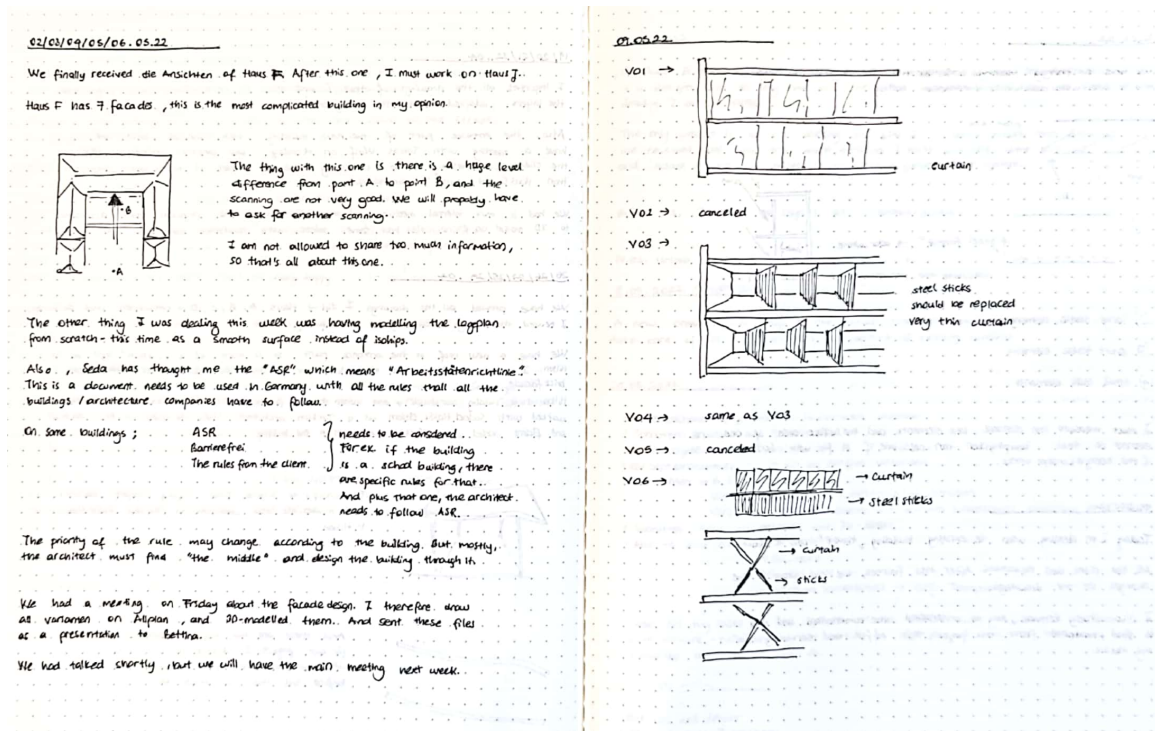 02/03/04/05/06.05.22
We finally received die Ansichten of Haus F. After this one, I must work on Haus J..
Haus F has 7 facades, this is the most complicated building in my opinion.
The thing with this one is there is a huge level
difference from point A to point B, and the
scanning are not very good. We will propobly have
to ask for another scanning.
B
I am not allowed to share too much information,
so that's all about this one.
A
The other thing I was dealing this week was having modelling the lageplan
from scratch - this time as a smooth surface instead of isohips.
Also, Seda has thought me the "ASR" which means "Arbeitsstätenrichtlinie".
This is a document needs to be used in Germany with all the rules that all the
buildings / architecture companies have to follow.
On some buildings ;
ASR
Barrierefrei
The rules from the client.
needs to be considered.
Forex if the building
is a school building, there
are specific rules for that..
And plus that one, the architect
needs to follow ASR..
The priority of the rule may change according to the building. But mostly,
the architect must find "the middle" and design the building through it.
We had a meeting on Friday about the facade design. I therefore draw
all varianten on Allplan, and 3D-modelled them. And sent these files
as a presentation to Bettina.
We had talked shortly, but we will have the main meeting next week..
09.05.22
V01 →
curtain
V02 → canceled
V03 →
steel sticks
should be replaced
very thin curtain
V04 → same as V03
V05 → canceled
V06 →
→ curtain
→ steel sticks
→ curtain
→ sticks